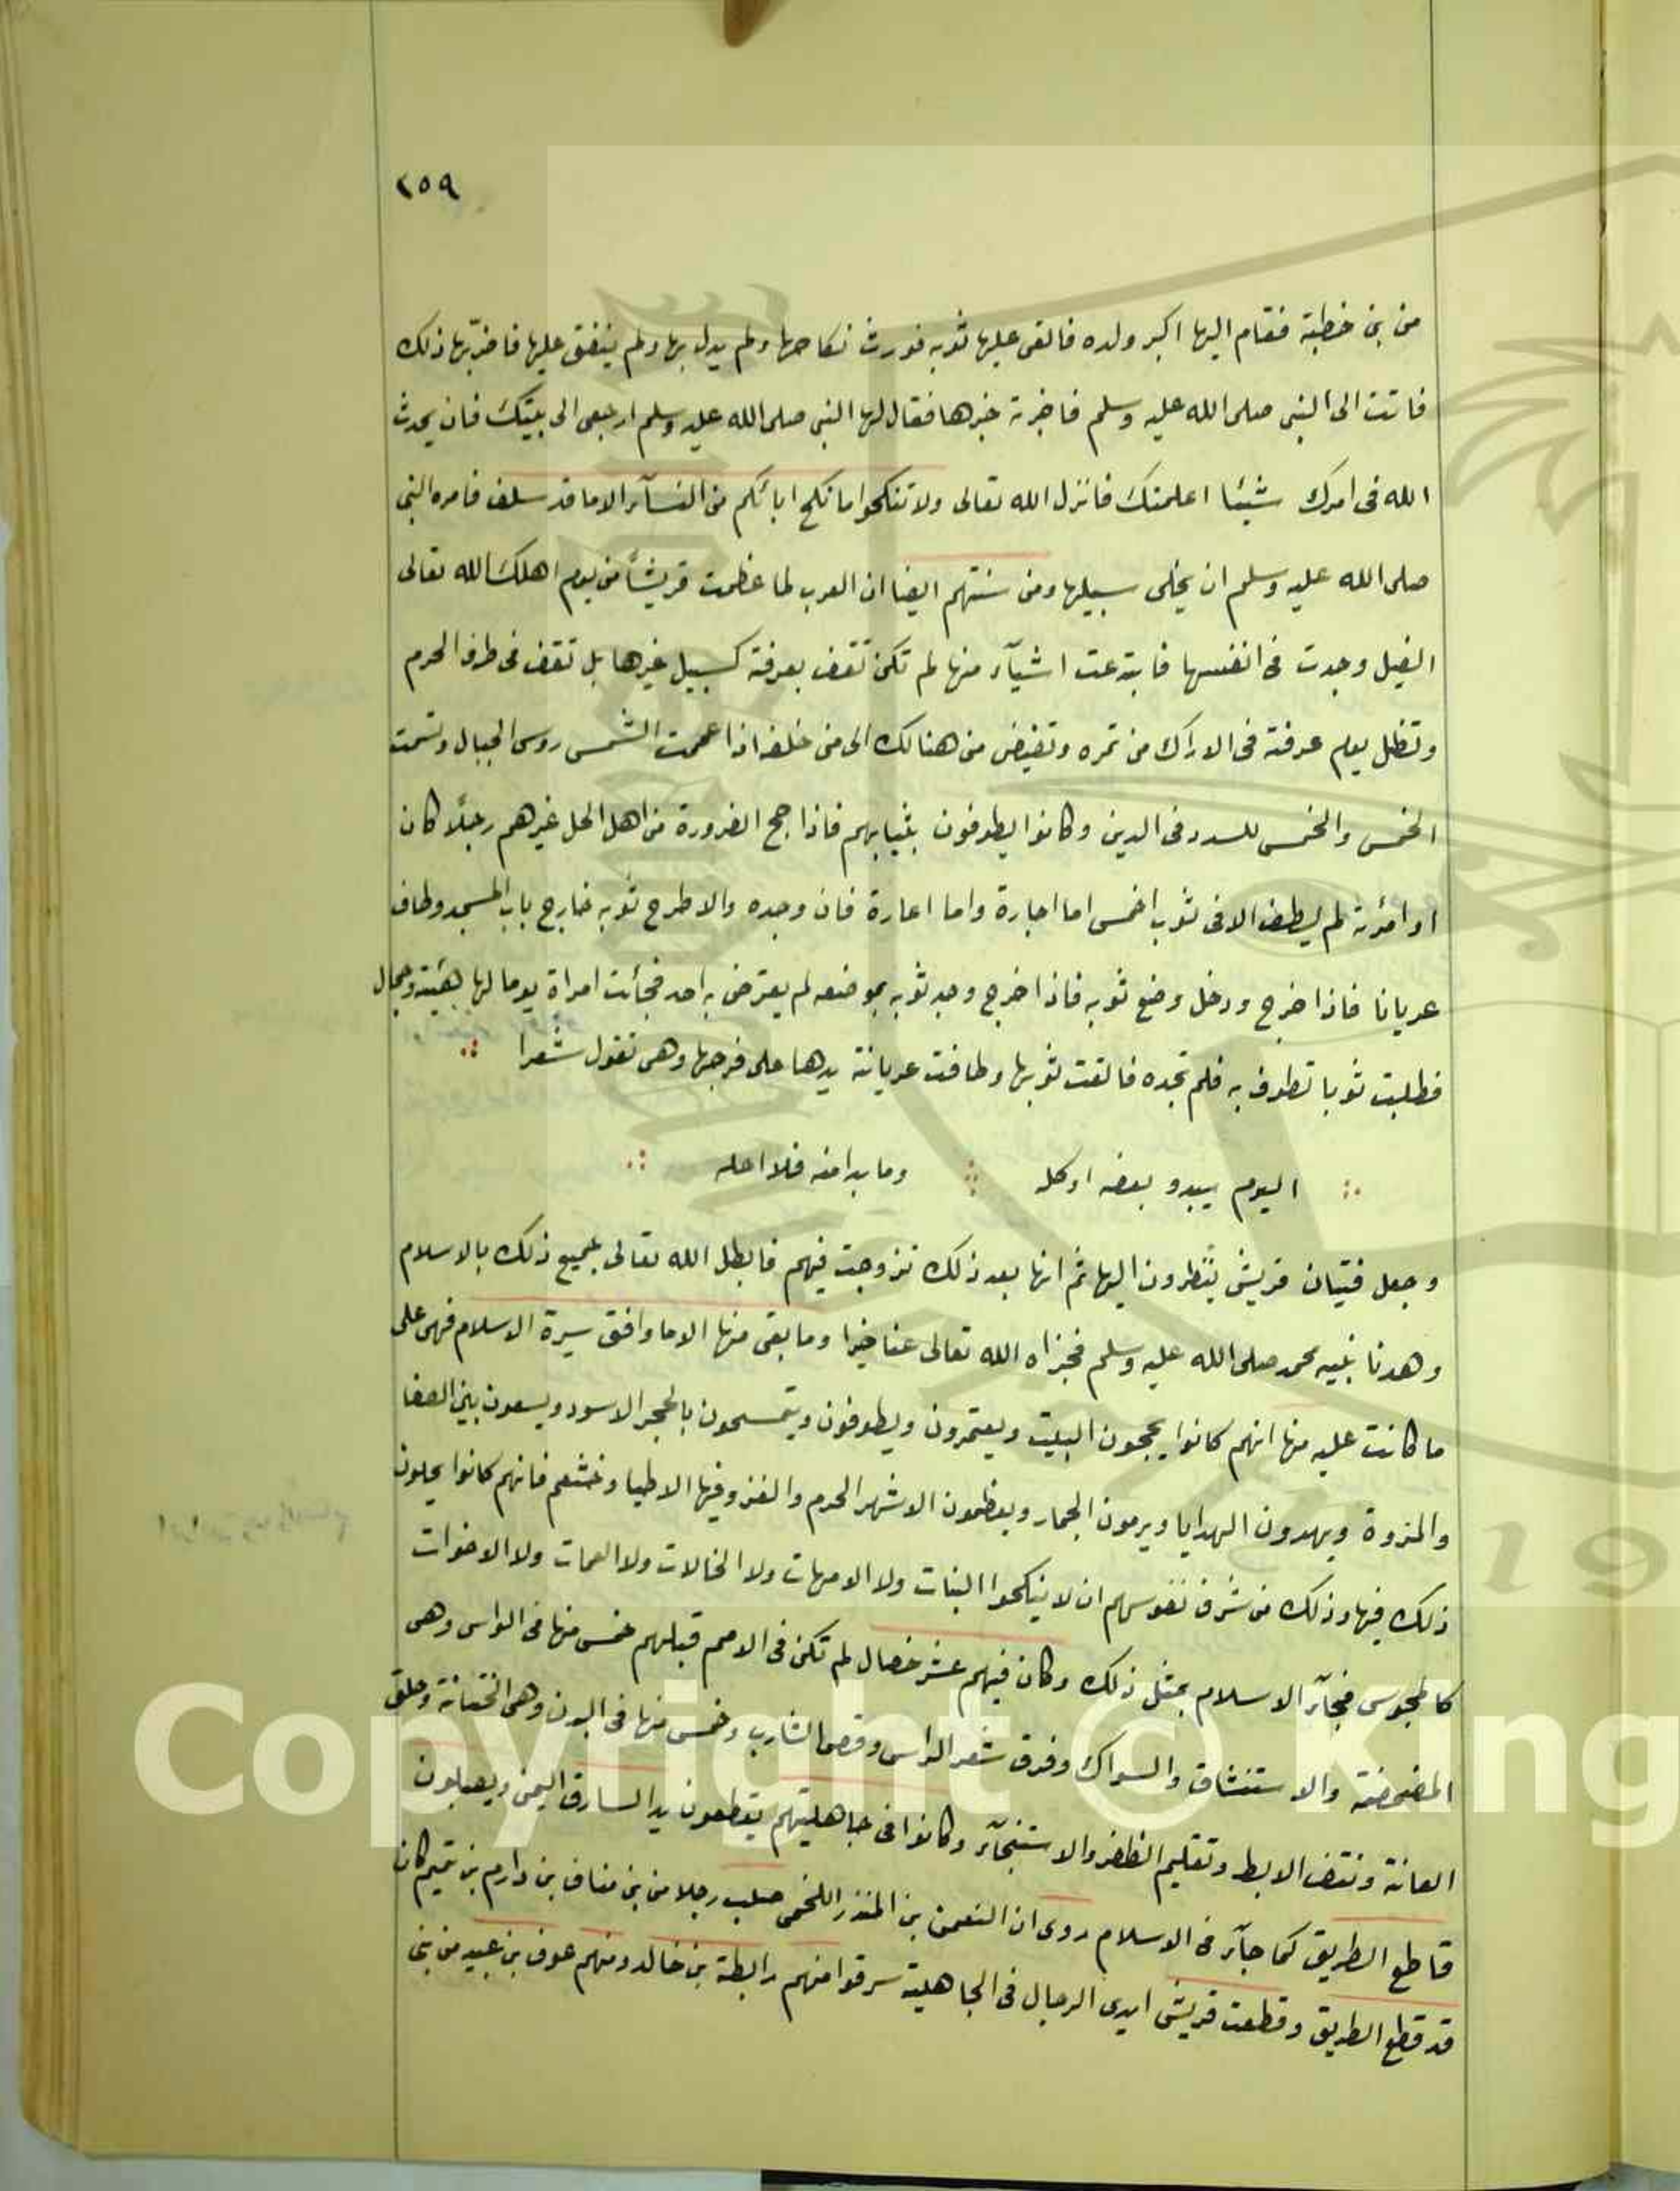 ٢٥٩
من بنى خطبة فقام اليها اكبر ولده فالقى عليها ثوبه فورث نكاحها ولم يدل بها ولم ينفق عليها فاضرّ بها ذلك
فاتت الى النبى صلى الله عليه وسلم فاخبرته خبرها فقال لها النبى صلى الله عليه وسلم ارجعى الى بيتك فان يحدث
الله فى امرك شيئا اعلمتك فانزل الله تعالى ولا تنكحوا ما نكح ابائكم من النسآء الا ما قد سلف فامره النبى
صلى الله عليه وسلم ان يخلى سبيلها ومن سنتهم ايضا ان العرب لما عظمت قريشاً من يوم اهلك الله تعالى
الفيل وجدت فى انفسها فابتدعت اشيآء منها لم تكن تقف بعرفة كسبيل غيرها بل تقف فى طرف الحرم
وتظل يوم عرفة فى الاراك من نمره وتفيض من هنالك الى من خلف اذا عممت الشمس روس الجبال وتسمت
الخمس والخمس للسدد فى الدين وكانوا يطوفون بثيابهم فاذا حج الضرورة من اهل الحل غيرهم رجلاً كان
او امرئة لم يطف الا فى ثوب اخمس اما اجارة واما اعارة فان وجده والا طرح ثوبه خارج باب المسجد وطاف
عريانا فاذا خرج ودخل وضع ثوبه فاذا خرج وجد ثوبه بموضعه لم يعترض به احد فجائت امراة يوما لها هيئة وجمال
فطلبت ثوبا تطوف به فلم تجده فالقت ثوبها وطافت عريانة يدها على فرجها وهى تقول شعرا
اليوم يبدو بعضه او كله وما بدا منه فلا احله
وجعل فتيان قريش ينظرون اليها ثم انها بعد ذلك تزوجت فيهم فابطل الله تعالى بجميع ذلك بالاسلام
وهدنا بنبيه محمد صلى الله عليه وسلم فجزاه الله تعالى عنا خيرا وما بقى منها الا ما وافق سيرة الاسلام فهى على
ما كانت عليه منها انهم كانوا يحجون البيت ويعتمرون ويطوفون ويتمسحون بالحجر الاسود ويسعون بين الصفا
والمزوة ويهدون الهدايا ويرمون الجمار ويعظمون الاشهر الحرم والغزو فيها الا طيا وخثعم فانهم كانوا يحلون
ذلك فيها وذلك من شرف نفوسهم ان لا ينكحوا البنات ولا الامهات ولا الخالات ولا العمات ولا الاخوات
كالمجوس فجآء الاسلام بمثل ذلك وكان فيهم عشر خصال لم تكن فى الامم قبلهم خمس منها فى الراس وهى
المضمضة والاستنشاق والسواك وفرق شعر الراس وقص الشارب وخمس منها فى البدن وهى الختانة وحلق
العانة ونتف الابط وتقليم الظفر والاستنجآء وكانوا فى جاهليتهم يقطعون يد السارق اليمنى ويصلبون
قاطع الطريق كما جآء فى الاسلام روى ان النعمن بن المنذر اللخمى صلب رجلا من بنى مناف بن دارم بن تميم كان
قد قطع الطريق وقطعت قريش ايدى الرجال فى الجاهلية سرقوا منهم رابطة بن خالد ومنهم عوف بن عبيد من بنى
Copyright © King